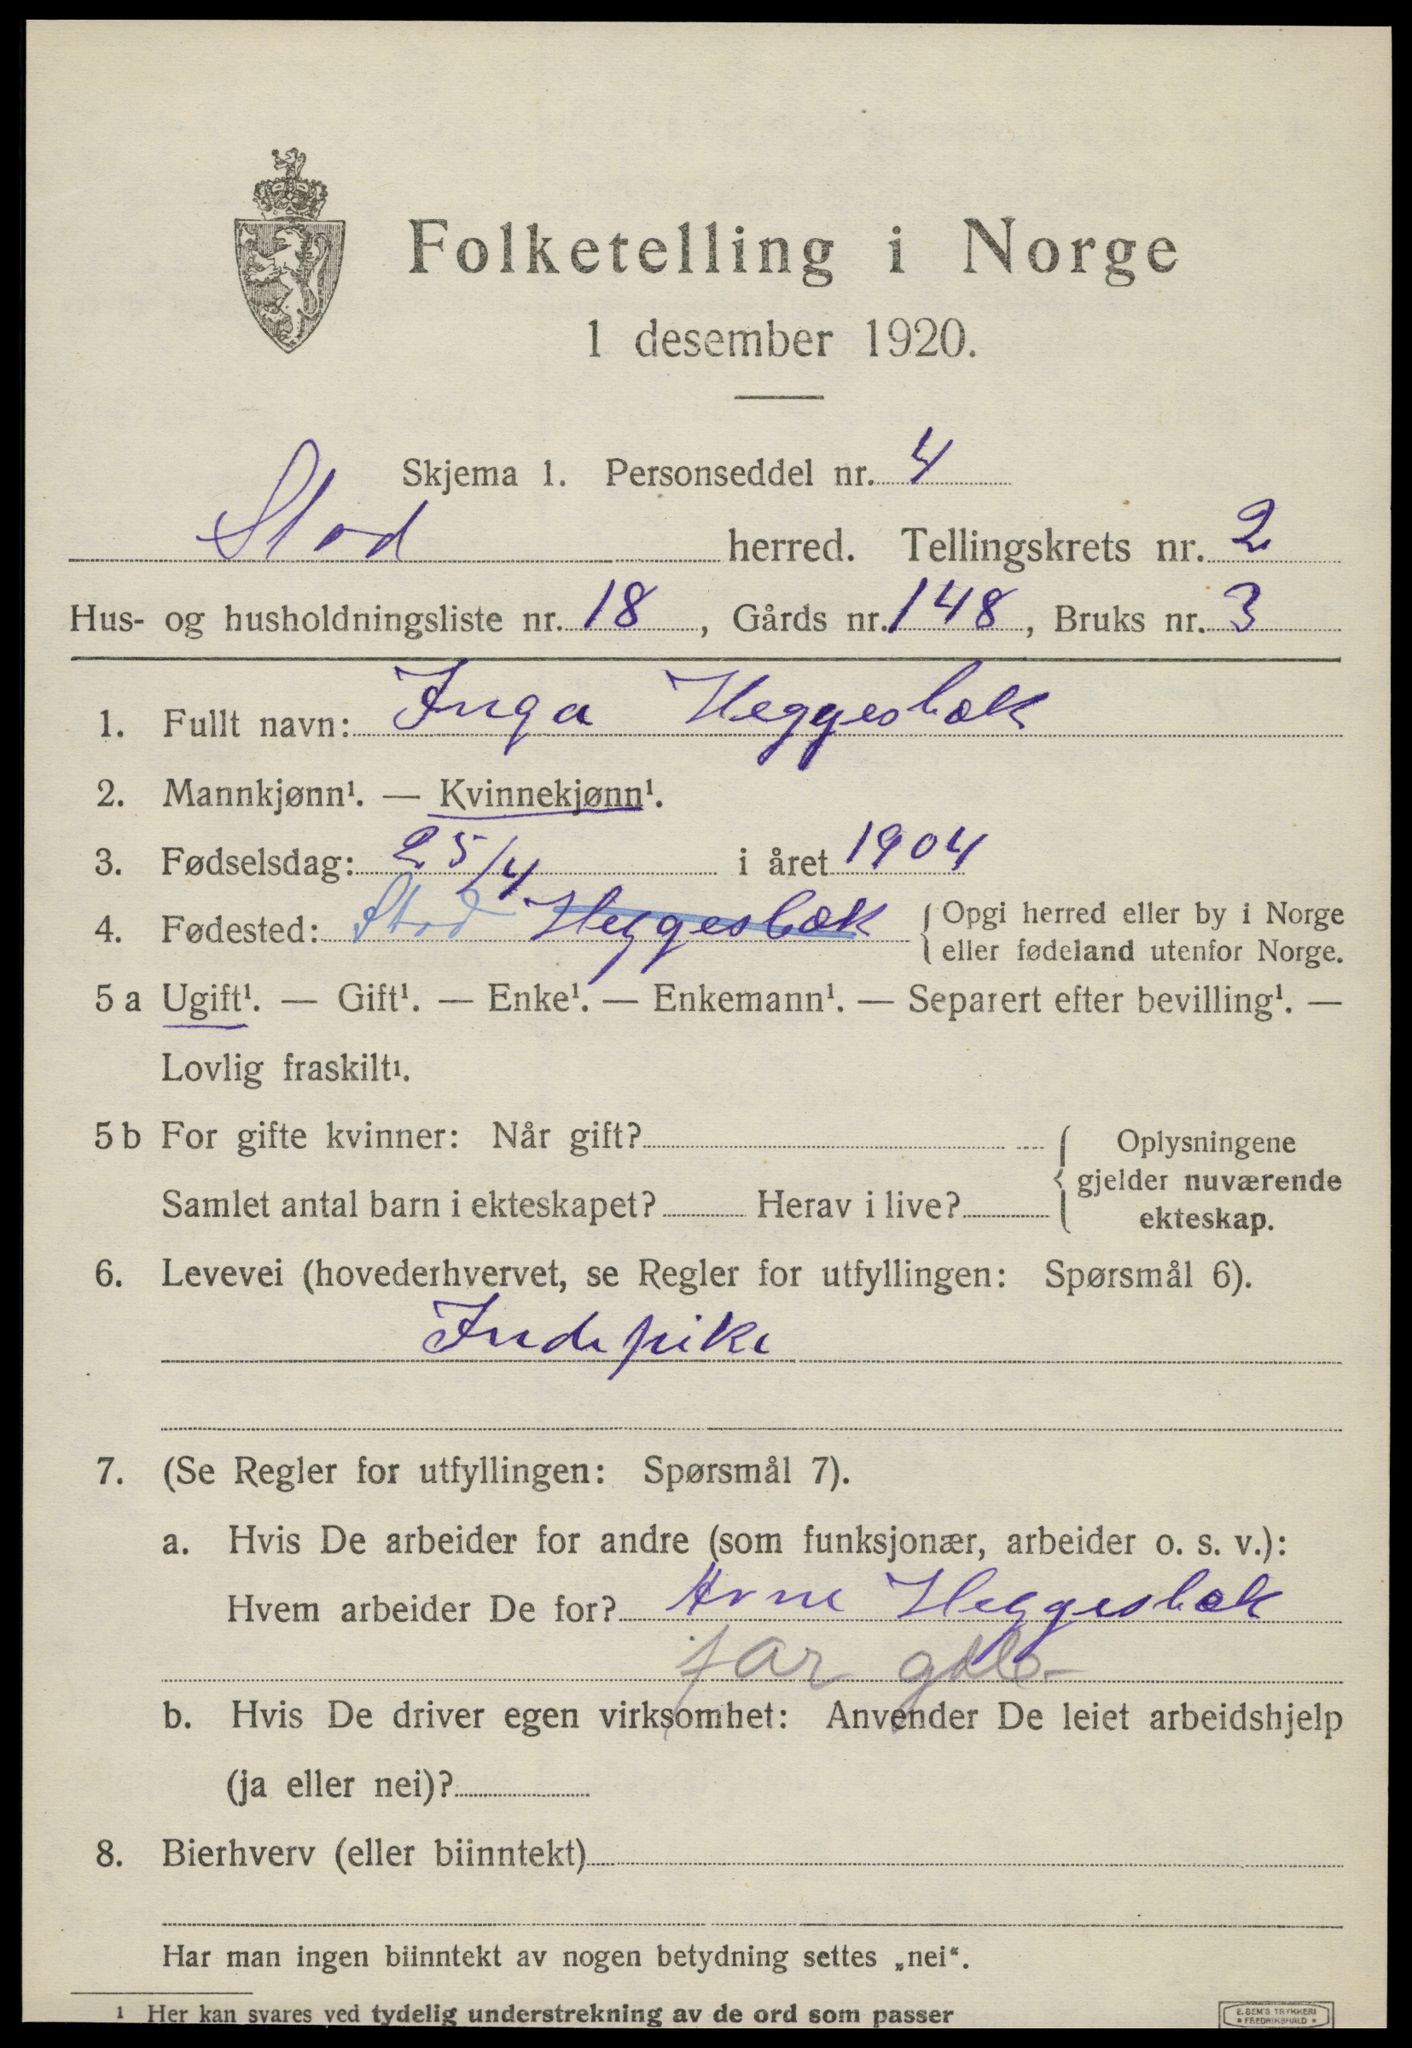 Folketelling i Norge
1 desember 1920.
Skjema 1. Personseddel nr. 4
Stod herred. Tellingskrets nr. 2
Hus- og husholdningsliste nr. 18, Gårds nr. 148, Bruks nr. 3
1. Fullt navn: Inga Heggesbæk
2. Mannkjønn¹. — Kvinnekjønn¹.
3. Fødselsdag: 25/4 i året 1904
4. Fødested: Stod Heggesbæk { Opgi herred eller by i Norge
eller fødeland utenfor Norge.
5 a Ugift¹. — Gift¹. — Enke¹. — Enkemann¹. — Separert efter bevilling¹. —
Lovlig fraskilt¹.
5 b For gifte kvinner: Når gift? { Oplysningene
gjelder nuværende
Samlet antal barn i ekteskapet? Herav i live? ekteskap.
6. Levevei (hovederhvervet, se Regler for utfyllingen: Spørsmål 6).
Indepike
7. (Se Regler for utfyllingen: Spørsmål 7).
a. Hvis De arbeider for andre (som funksjonær, arbeider o. s. v.):
Hvem arbeider De for? Arne Heggesbæk
far gdb.
b. Hvis De driver egen virksomhet: Anvender De leiet arbeidshjelp
(ja eller nei)?
8. Bierhverv (eller biinntekt)
Har man ingen biinntekt av nogen betydning settes „nei“.
¹ Her kan svares ved tydelig understrekning av de ord som passer
E. SEM'S TRYKKERI
• FREDRIKSHALD •